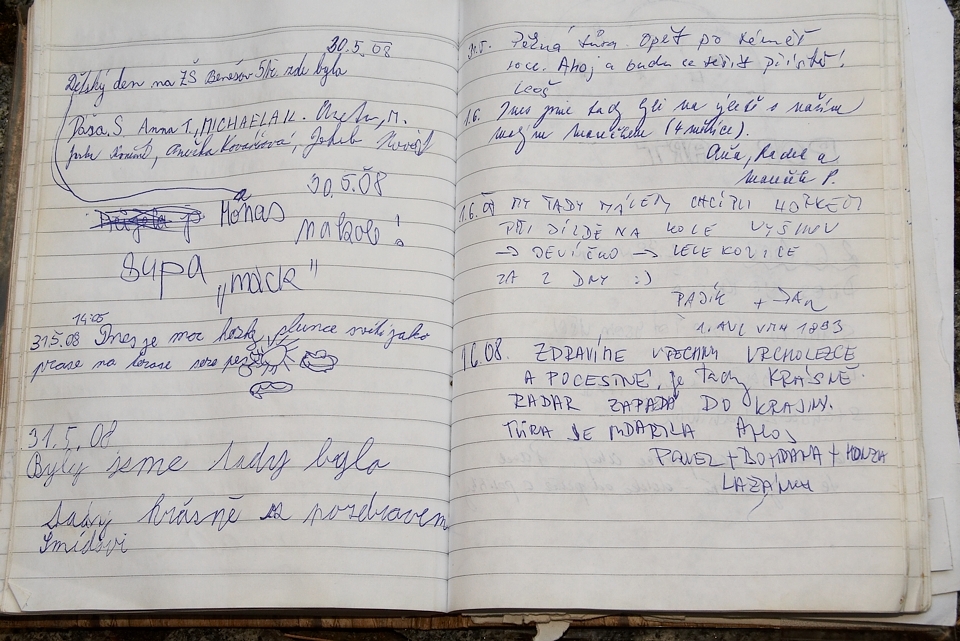 30.5.08
Dětský den na ZŠ Benešov 5tř. zde byla
Pája.S. Anna T., MICHAELA K. M.
Anička Kovářová, Jakub
30.5.08
Monas
na kole!
supa "mack"
14:05
31.5.08 Dnes je moc hezky, slunce svítí jako
prase na terase
31.5.08
Byly jsme tady bylo
tady krásně s pozdravem
Šmídovi
31.5. Pěžná túra. Opět po téměř
roce. Ahoj a budu se těšit příště!
Leoš
1.6. Dnes jsme tady byli na výletě s naším
malým Marečkem (4 měsíce).
Áňa, Radek a
Mareček P.
1.6.08 MY TADY MÁLEM CHCÍPLI HORKEM
PŘI JÍZDĚ NA KOLE
→ DEVÍČKO → LELEKOVICE
ZA 2 DNY :)
PAJÍK + JAN
1.6.08. ZDRAVÍME VŠECHNY VRCHOLEZCE
A POCESTNÉ, je tady KRÁSNĚ.
RADAR ZAPADÁ DO KRAJINY.
TÚRA SE VYDAŘILA AHOJ
PAVEL + BOHDANA + HONZA
LAŽÁNKY